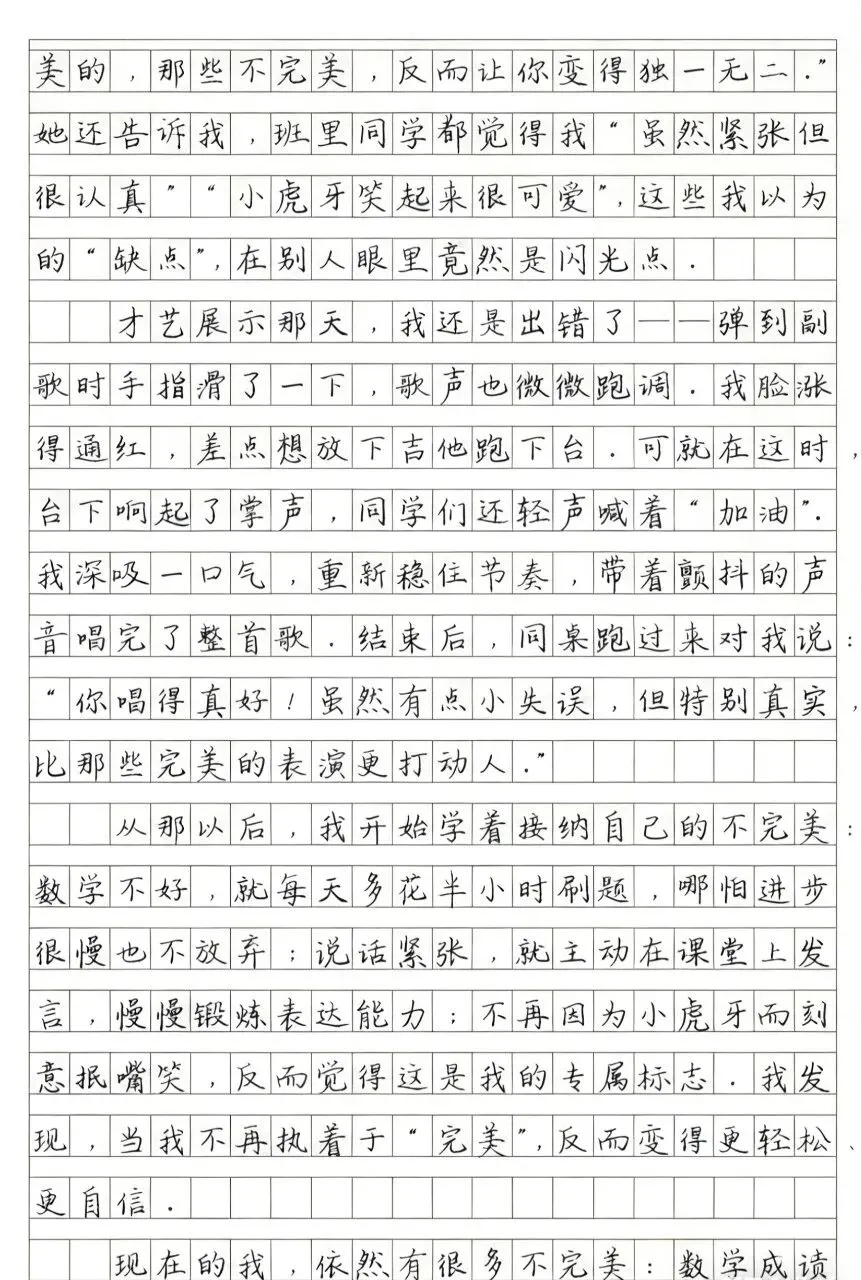 美的，那些不完美，反而让你变得独一无二．”
她还告诉我，班里同学都觉得我“虽然紧张但
很认真”“小虎牙笑起来很可爱”，这些我以为
的“缺点”，在别人眼里竟然是闪光点．
才艺展示那天，我还是出错了——弹到副
歌时手指滑了一下，歌声也微微跑调．我脸涨
得通红，差点想放下吉他跑下台．可就在这时，
台下响起了掌声，同学们还轻声喊着“加油”．
我深吸一口气，重新稳住节奏，带着颤抖的声
音唱完了整首歌．结束后，同桌跑过来对我说：
“你唱得真好！虽然有点小失误，但特别真实，
比那些完美的表演更打动人．”
从那以后，我开始学着接纳自己的不完美：
数学不好，就每天多花半小时刷题，哪怕进步
很慢也不放弃；说话紧张，就主动在课堂上发
言，慢慢锻炼表达能力；不再因为小虎牙而刻
意抿嘴笑，反而觉得这是我的专属标志．我发
现，当我不再执着于“完美”，反而变得更轻松、
更自信．
现在的我，依然有很多不完美：数学成绩